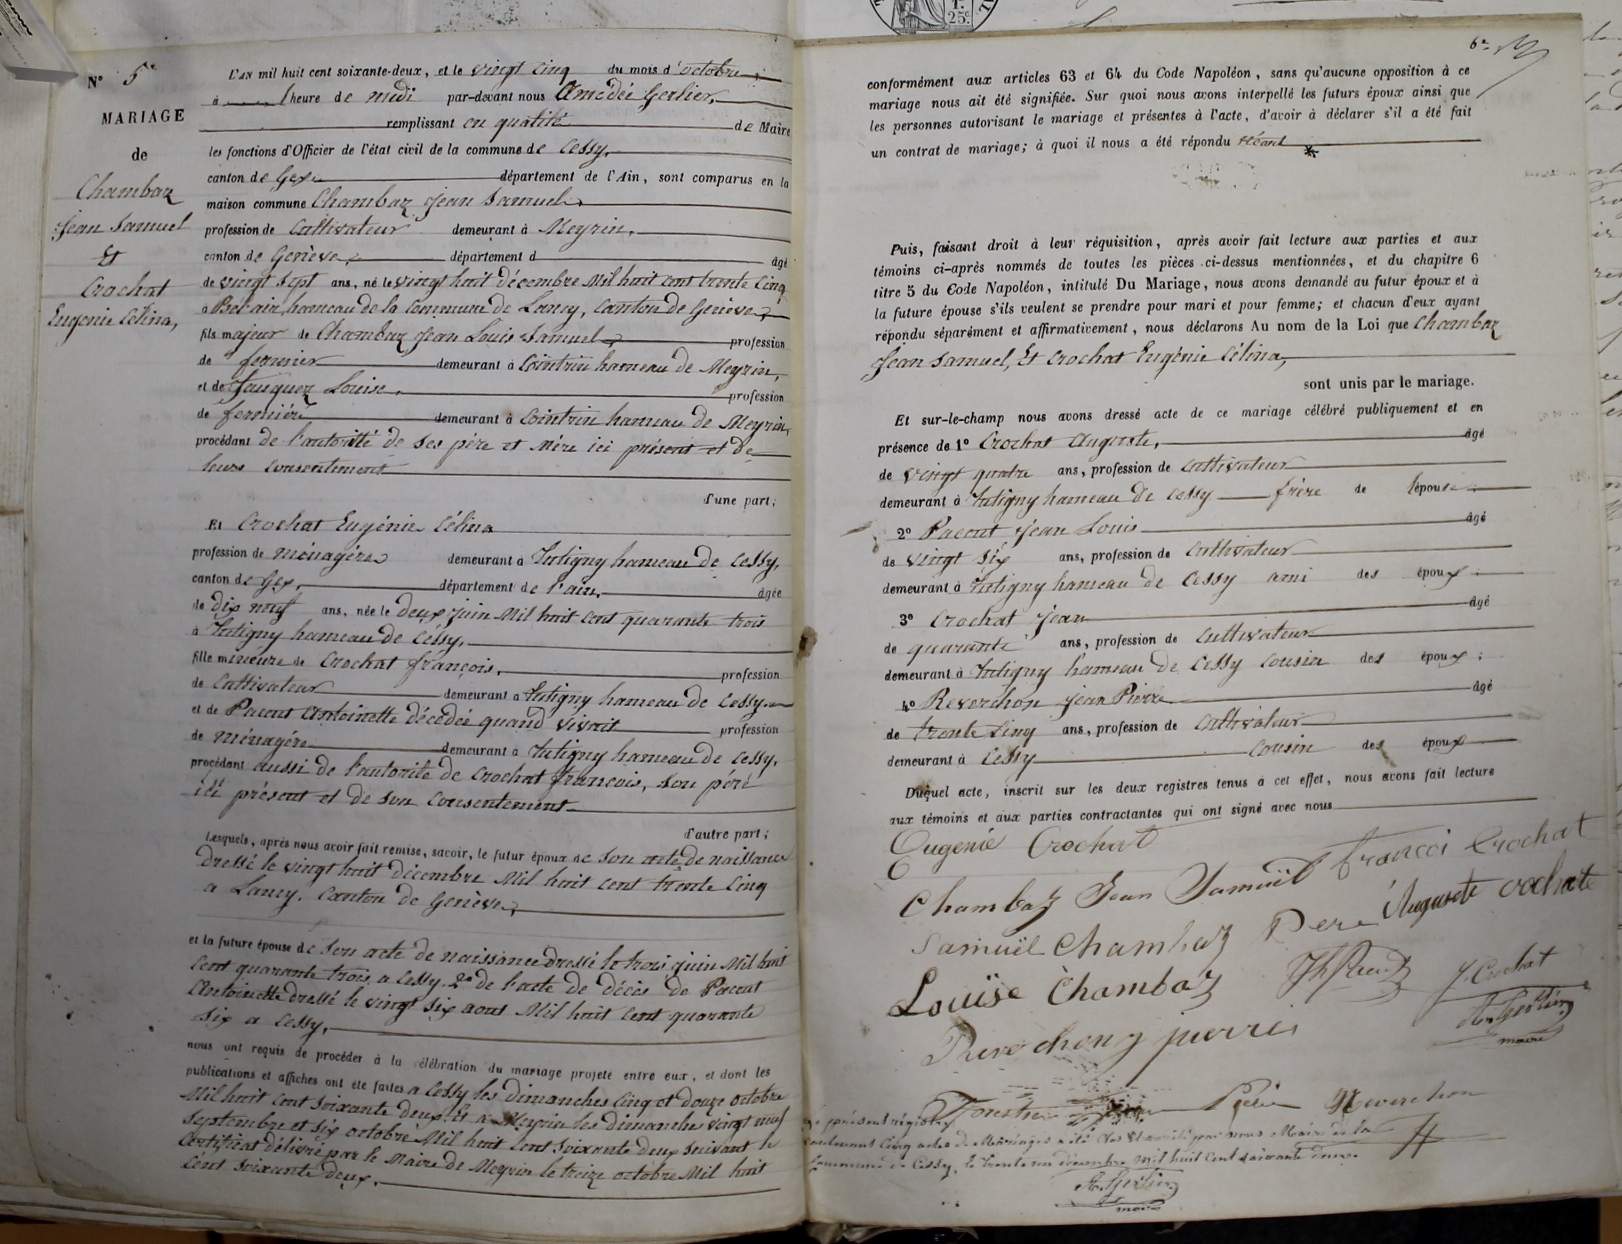 N° 5e
MARIAGE
de
Chambaz
Jean Samuel
Et
Crochat
Eugénie Célina,
L'AN mil huit cent soixante-deux, et le vingt cinq du mois d'octobre,
à heure de midi par-devant nous Amédée Gerlier,
remplissant en qualité de Maire
les fonctions d'Officier de l'état civil de la commune de Cessy,
canton de Gex département de l'Ain, sont comparus en la
maison commune Chambaz Jean Samuel,
profession de Cultivateur demeurant à Meyrin,
canton de Genève, département d âgé
de vingt sept ans, né le vingt huit décembre Mil huit cent trente Cinq
a Bel air, hameau de la Commune de Lancy, Canton de Genève,
fils majeur de Chambaz Jean Louis Samuel profession
de fermier demeurant à Cointrin hameau de Meyrin,
et de Jaquez Louise, profession
de fermière demeurant à Cointrin hameau de Meyrin,
procédant de l'autorité de ses père et mère ici présent et de
leurs consentement
d'une part;
Et Crochat Eugénie Célina
profession de ménagère demeurant à Tutigny hameau de Cessy,
canton de Gex, département de l'ain, âgée
de dix neuf ans, née le deux juin Mil huit cent quarante trois
à Tutigny hameau de Cessy,
fille mineure de Crochat françois, profession
de Cultivateur demeurant à Tutigny hameau de Cessy
et de Pacout Antoinette décédée quand vivait profession
de ménagère demeurant à Tutigny hameau de Cessy,
procédant aussi de l'autorité de Crochat françois, son père
ici présent et de son consentement
d'autre part;
Lesquels, après nous avoir fait remise, savoir, le futur époux de son acte de naissance
dressé le vingt huit décembre Mil huit cent trente Cinq
a Lancy, Canton de Genève,
et la future épouse de son acte de naissance dressé le trois juin Mil huit
cent quarante trois a Cessy. 2° de l'acte de décès de Pacout
Antoinette dressé le vingt six aout Mil huit cent quarante
six a Cessy,
nous ont requis de procéder à la célébration du mariage projeté entre eux, et dont les
publications et affiches ont été faites a Cessy les dimanches Cinq et douze octobre
Mil huit cent soixante deux, et a Meyrin les dimanche vingt neuf
Septembre et six octobre Mil huit cent soixante deux suivant le
Certificat délivré par le Maire de Meyrin le treize octobre Mil huit
Cent soixante deux,
conformément aux articles 63 et 64 du Code Napoléon, sans qu'aucune opposition à ce
mariage nous ait été signifiée. Sur quoi nous avons interpellé les futurs époux ainsi que
les personnes autorisant le mariage et présentes à l'acte, d'avoir à déclarer s'il a été fait
un contrat de mariage; à quoi il nous a été répondu néant
Puis, faisant droit à leur réquisition, après avoir fait lecture aux parties et aux
témoins ci-après nommés de toutes les pièces ci-dessus mentionnées, et du chapitre 6
titre 5 du Code Napoléon, intitulé Du Mariage, nous avons demandé au futur époux et à
la future épouse s'ils veulent se prendre pour mari et pour femme; et chacun d'eux ayant
répondu séparément et affirmativement, nous déclarons Au nom de la Loi que Chambaz
Jean Samuel, Et Crochat Eugénie Célina,
sont unis par le mariage.
Et sur-le-champ nous avons dressé acte de ce mariage célébré publiquement et en
présence de 1° Crochat Auguste, âgé
de vingt quatre ans, profession de Cultivateur
demeurant à Tutigny hameau de Cessy frère de l'épouse
2° Pacout Jean Louis âgé
de vingt six ans, profession de Cultivateur
demeurant à Tutigny hameau de Cessy ami des époux
3° Crochat Jean âgé
de quarante ans, profession de Cultivateur
demeurant à Tutigny hameau de Cessy cousin des époux;
4° Reverchon Jean Pierre âgé
de trente Cinq ans, profession de Cultivateur
demeurant à Cessy Cousin des époux
Duquel acte, inscrit sur les deux registres tenus à cet effet, nous avons fait lecture
aux témoins et aux parties contractantes qui ont signé avec nous
Eugenie Crochat
Chambaz Jean Samuël francoi Crochat
Samuël Chambaz Pere Auguste Crochate
Louïse Chambaz J Crochat
Reverchong pierre Am Gerlier
maire
Reverchon
Le présent régistre
contenant Cinq actes de Mariages a été clos et arrêté par nous Maire de la
Commune de Cessy, le trente un décembre Mil huit Cent soixante deux.
Am Gerlier
maire